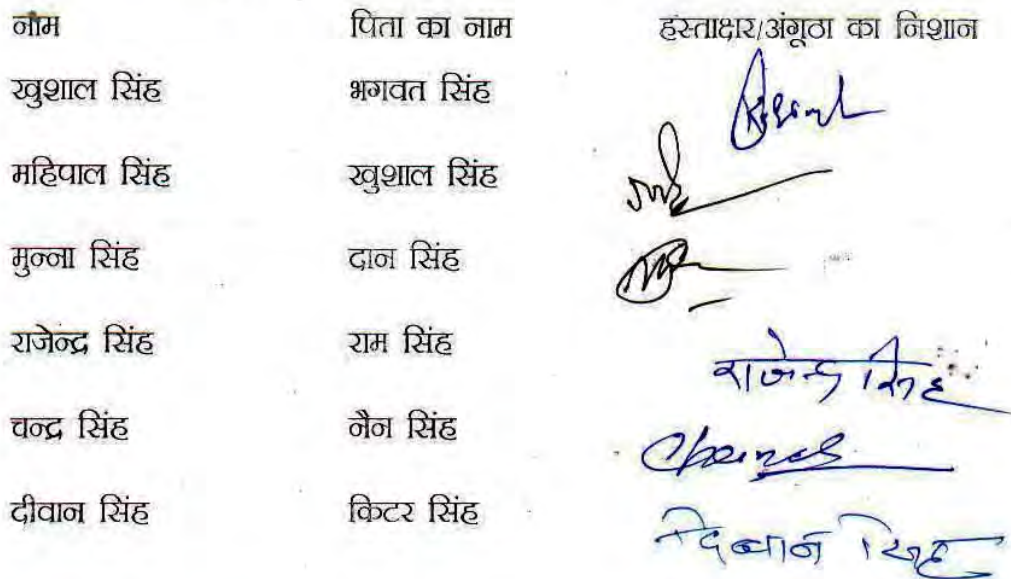 नाम पिता का नाम हस्ताक्षर/अंगूठा का निशान
खुशाल सिंह भगवत सिंह
महिपाल सिंह खुशाल सिंह
मुन्ना सिंह दान सिंह
राजेन्द्र सिंह राम सिंह राजेन्द्र सिंह
चन्द्र सिंह नैन सिंह
दीवान सिंह किटर सिंह